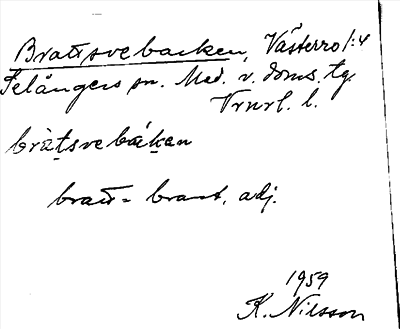 Brattsvebacken, Västerro 1:4
Selångers sn. Med. v. doms. tg.
Vrnrl. l.
bràtsvebákan
bratt = brant, adj.
1959
K. Nilsson